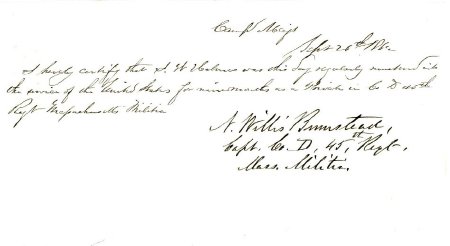 Camp Meigs
Sept 20th 1862
I hereby certify that S. W. Holmes was this day regularly mustered into
the service of the United States for nine months as a Private in Co D 45th
Regt Massachusetts Militia
N. Willis Bumstead,
Capt. Co. D, 45,th Regt,
Mass. Militia.